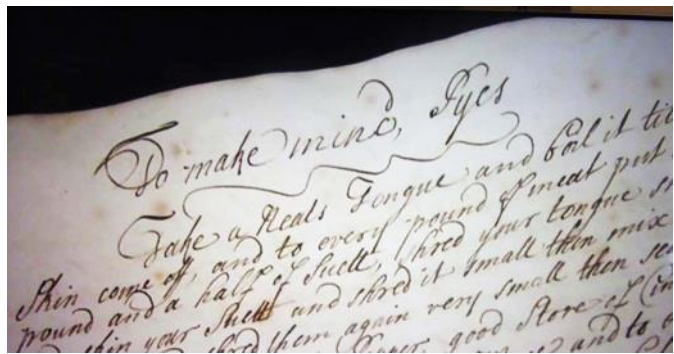 To make minc'd Pyes
Take a Neats Tongue and boil it till
Skin come off, and to every pound of meat put
pound and a half of Suett, shred your tongue
skin your Suett and shred it small then mix
shred them again very small then
good Store of
and to